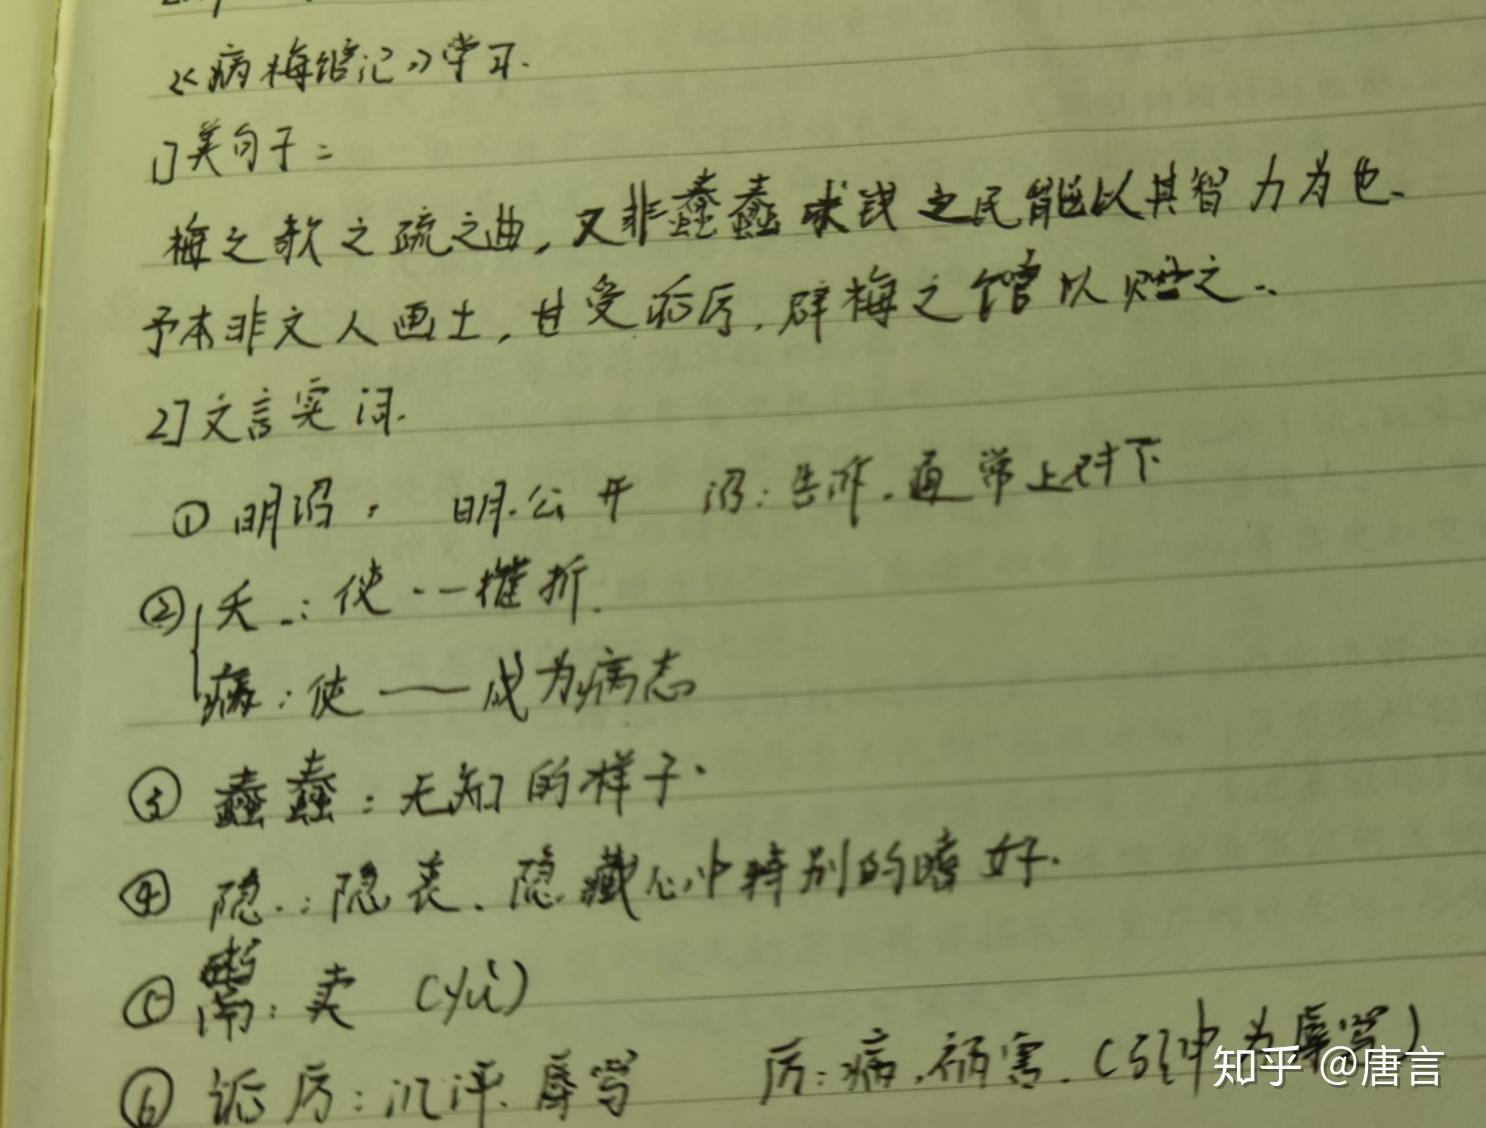 《病梅馆记》学习.
1] 美句子:
梅之欹之疏之曲，又非蠢蠢求钱之民能以其智力为也.
予本非文人画士，甘受诟厉，辟梅之馆以贮之..
2] 文言实词.
① 明诏, 明.公开 诏:告诉.通常上对下
② 夭:使··一摧折.
病:使——成为病态
③ 蠢蠢:无知的样子.
④ 隐.:隐衷、隐藏心中特别的嗜好.
⑤ 鬻:卖 (yù)
⑥ 诟厉:讥评.辱骂 厉:病.祸害.(引申为辱骂)
知乎 @唐言